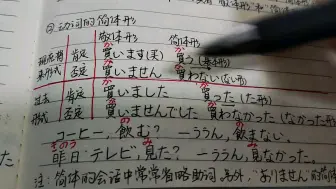 ②动词的简体形
敬体形 简体形
现在将来形式 肯定 買います(买) 買う(基本形)
否定 買いません 買わない(ない形)
过去形式 肯定 買いました 買った(た形)
否定 買いませんでした 買わなかった(なかった形)
コーヒー、飲む? ー ううん、飲まない。
きのう
昨日、テレビ、見た? ー ううん、見なかった。
注:简体的会话中常常省略助词。另外,"ありません"的简体